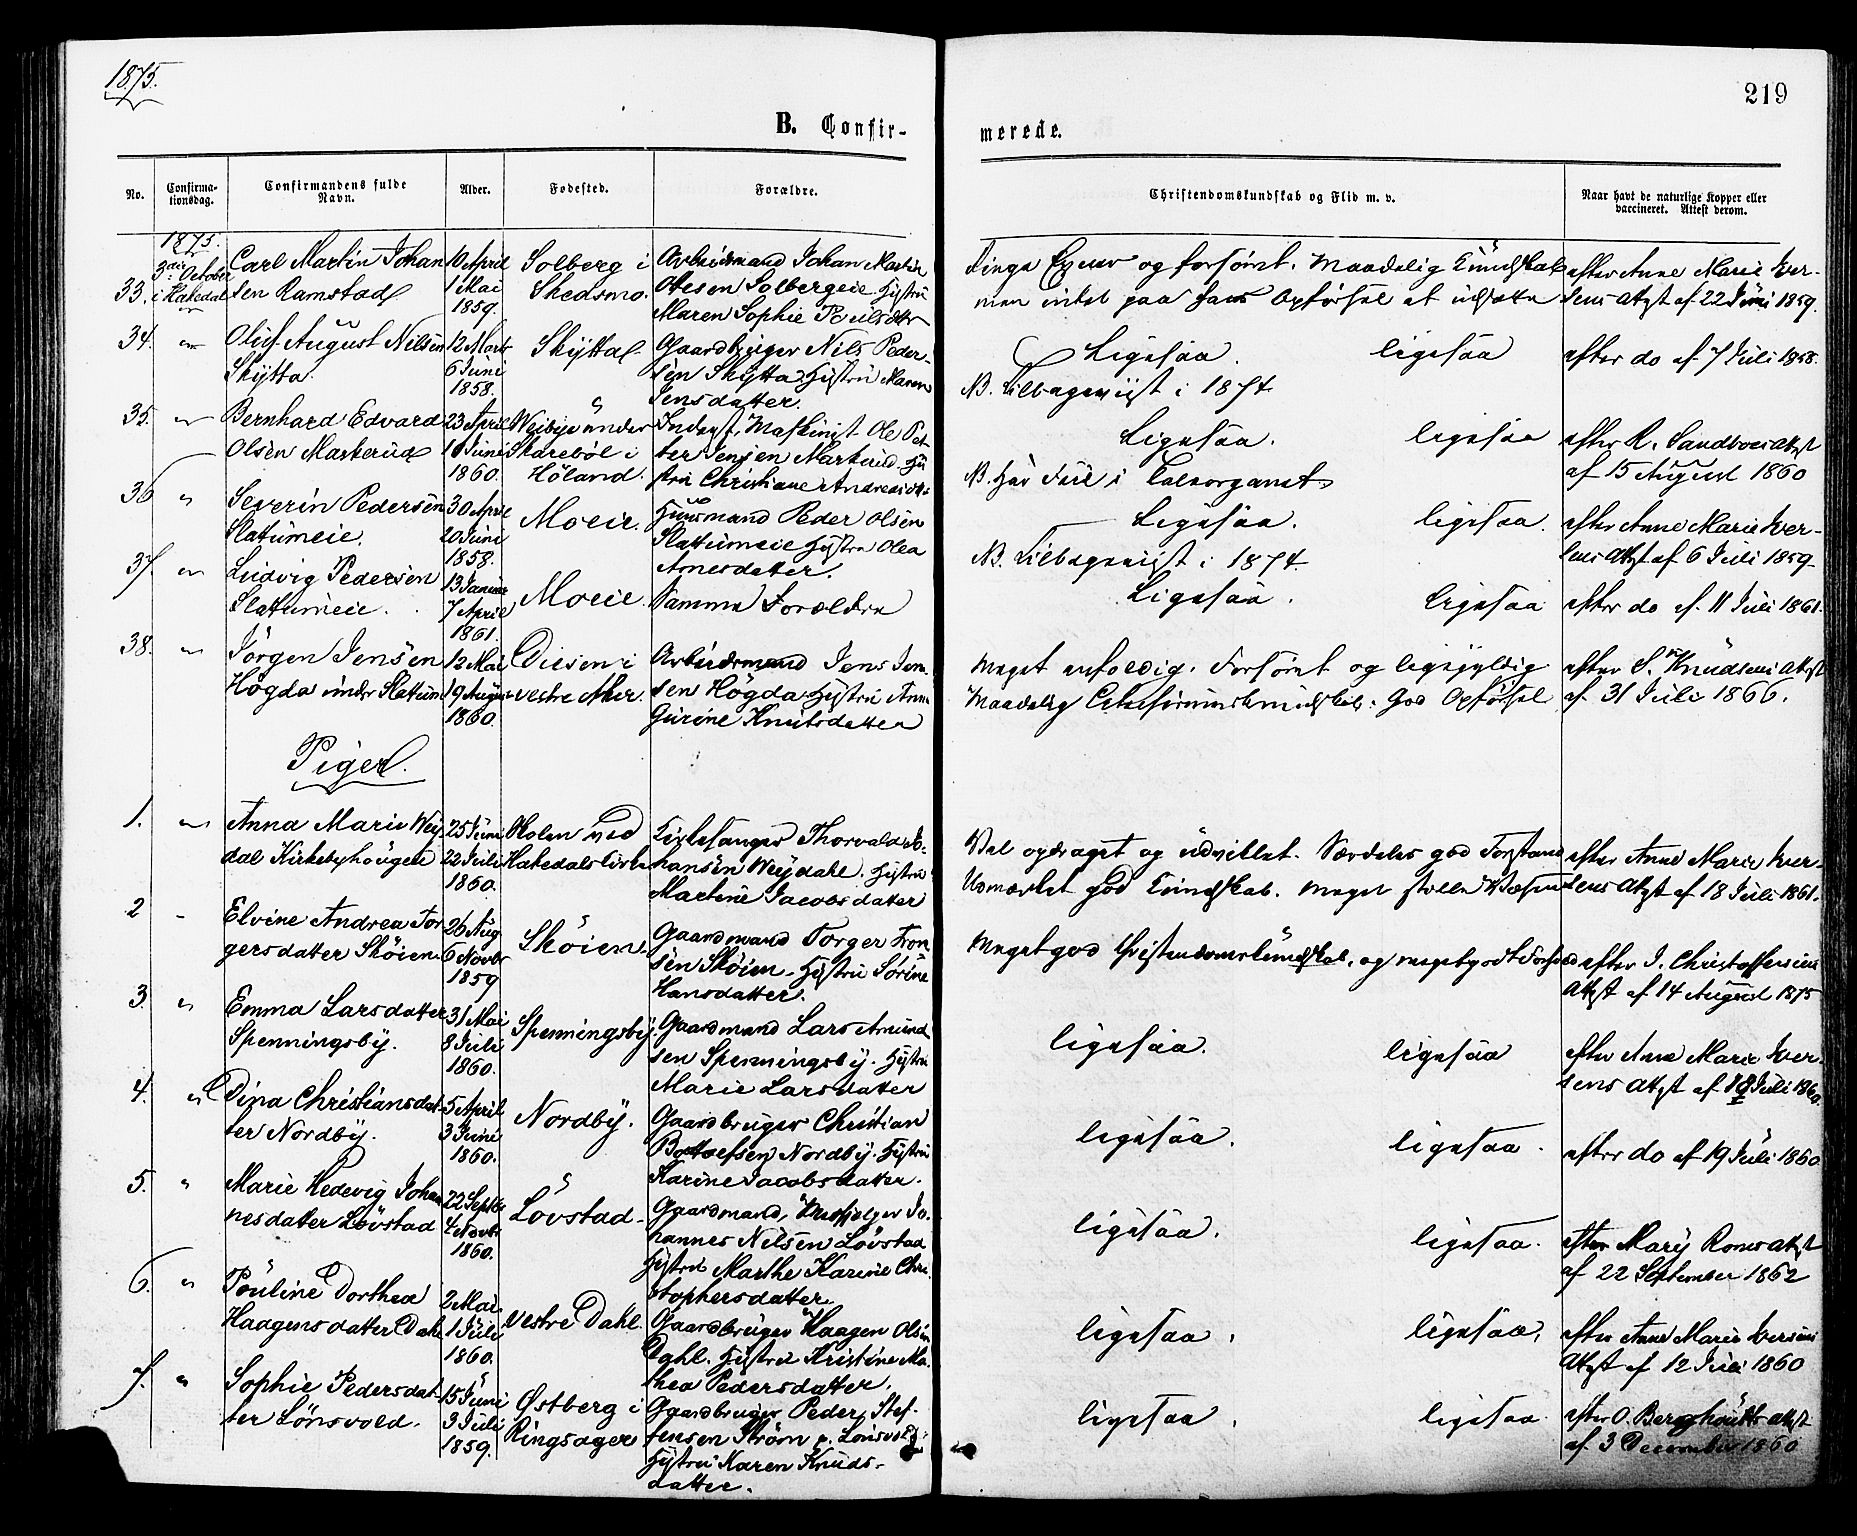 1875.
219
B. Confir-
merede.
No.
Confirma-
tionsdag.
Confirmandens fulde
Navn.
Alder.
Fødested.
Forældre.
Christendomskundskab og Flid m. v.
Naar havt de naturlige Kopper eller
vaccineret. Attest derom.
1875.
3die October
i Hakedal
33.
Carl Martin Johan
sen Ramstad
10 April
1 Mai
1859.
Solberg i
Skedsmo.
Arbeidsmand Johan Martin
Olesen Solbergeie Hustru
Maren Sophie
og forsömt. Maadelig Kundskab
men intet paa hans Opförsel at udsætte
efter Anne Marie Iver-
sens Attst af 22 Juni 1859.
34.
Oluf August Nilsen
Skytta.
12 Marts
6 Juni
1858.
Skytta
Gaardbruger Nils Peder-
sen Skytta Hustru Maren
Jensdatter.
Ligesaa. ligesaa
NB. Tilbageviist i 1874
efter do af 7 Juli 1858.
35.
Bernhard Edvard
Olsen Markerud
23 April
10 Juni
1860.
Veibye under
Skareböl i
Höland.
Inderst, Maskinist Ole Pet
ter Jensen Markerud Hu
stru Christiane
Ligesaa. ligesaa
NB. Har Feil i Taleorganet
efter R. Attst
af 15 August 1860
36
Severin Pedersen
Slatumeie.
30 April
20 Juni
1858.
Moeie.
Huusmand Peder Olsen
Slattumeie Hustru Olea
Arnesdatter.
Ligesaa. ligesaa.
NB. Tilbageviist i 1874.
efter Anne Marie Iver-
sens Attst af 6 Juli 1859
37.
Ludvig Pedersen
Slatumeie.
13 Januar
7 April
1861.
Moeie.
Samme Forældre
Ligesaa. ligesaa
efter do af 11 Juli 1861.
38.
Jörgen Jensen
Högda under Slatum
12 Mai
19 August
1860.
Diesen i
vestre Aker.
Arbeidsmand Jens Jen
sen Högda Hustru Anne
Gurine Knutsdatter
Meget enfoldig. Forsömt og ligegyldig
Maadelig . God Opförsel
efter S. Knudsens Attst
af 31 Juli 1866.
Piger.
1.
Anna Marie Wey
dal Kirkebyhougen
25 Juni
22 Juli
1860.
Holen ved
Hakedals Kirke
Kirkesanger Thorvald Jo-
hansen Weydahl. Hustru
Martine Jacobsdatter
Vel opdraget og udviklet. Særdeles god Forstand
Udmærket god Kundskab. Meget stille Væsen
efter Anne Marie Iver-
sens Attst af 18 Juli 1861.
2
Elvine Andrea Tor
gersdatter Sköien
26 Aug
6 Novbr
1859
Sköien.
Gaardmand Torger Tron
sen Sköien. Hustru Sörine
Hansdatter.
Meget god Christendomskundskab, og meget godt
efter J. Christoffersens
Attst af 14 August 1875
3.
Emma Larsdatter
Spenningsby.
31 Mai
8 Juli
1860.
Spenningsby.
Gaardmand Lars Amund
sen Spenningsby. Hustru
Marie Larsdatter
ligesaa. ligesaa
efter Anne Marie Iver-
sens Attst af 18 Juli 1860.
4.
Dina Christiansdat
ter Nordby.
5 April
3 Juni
1860.
Nordby.
Gaardbruger Christian
Bottolfsen Nordby. Hustru
Karine Jacobsdatter.
ligesaa. ligesaa.
efter do af 19 Juli 1860.
5.
Marie Hedevig Johan
nesdatter Lövstad
22 Septbr
4 Novbr
1860.
Lövstad
Gaardmand, Jo-
hannes Nilsen Lövstad
Hustru Marthe Karine Chri
stophersdatter.
ligesaa. ligesaa.
efter Mary Attst
af 22 September 1862
6.
Pouline Dorthea
Haagensdatter Dahl
2 Mai
1 Juli
1860.
vestre Dahl.
Gaardbruger Haagen Olsen
Dahl. Hustru Kristine Ma-
thea Pedersdatter.
ligesaa. ligesaa.
efter Anne Marie Iversens
Attst af 12 Juli 1860
7.
Sophie Pedersdat
ter Lönsvold.
15 Juni
3 Juli
1859.
Østberg i
Ringsager
Gaardbruger Peder Stef-
fensen Ström p. Lönsvold
Hustru Karen Knuds-
datter.
ligesaa. ligesaa.
efter O. Attst
af 3 December 1860